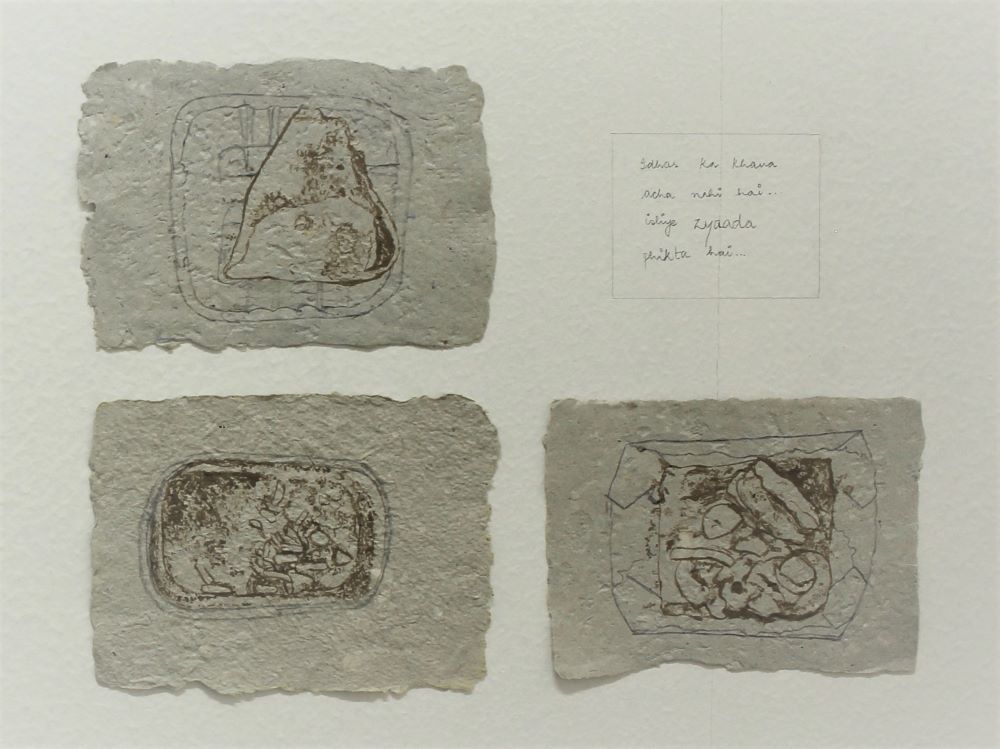 Idhar ka khana
acha nahi hai...
isliye zyaada
phikta hai...